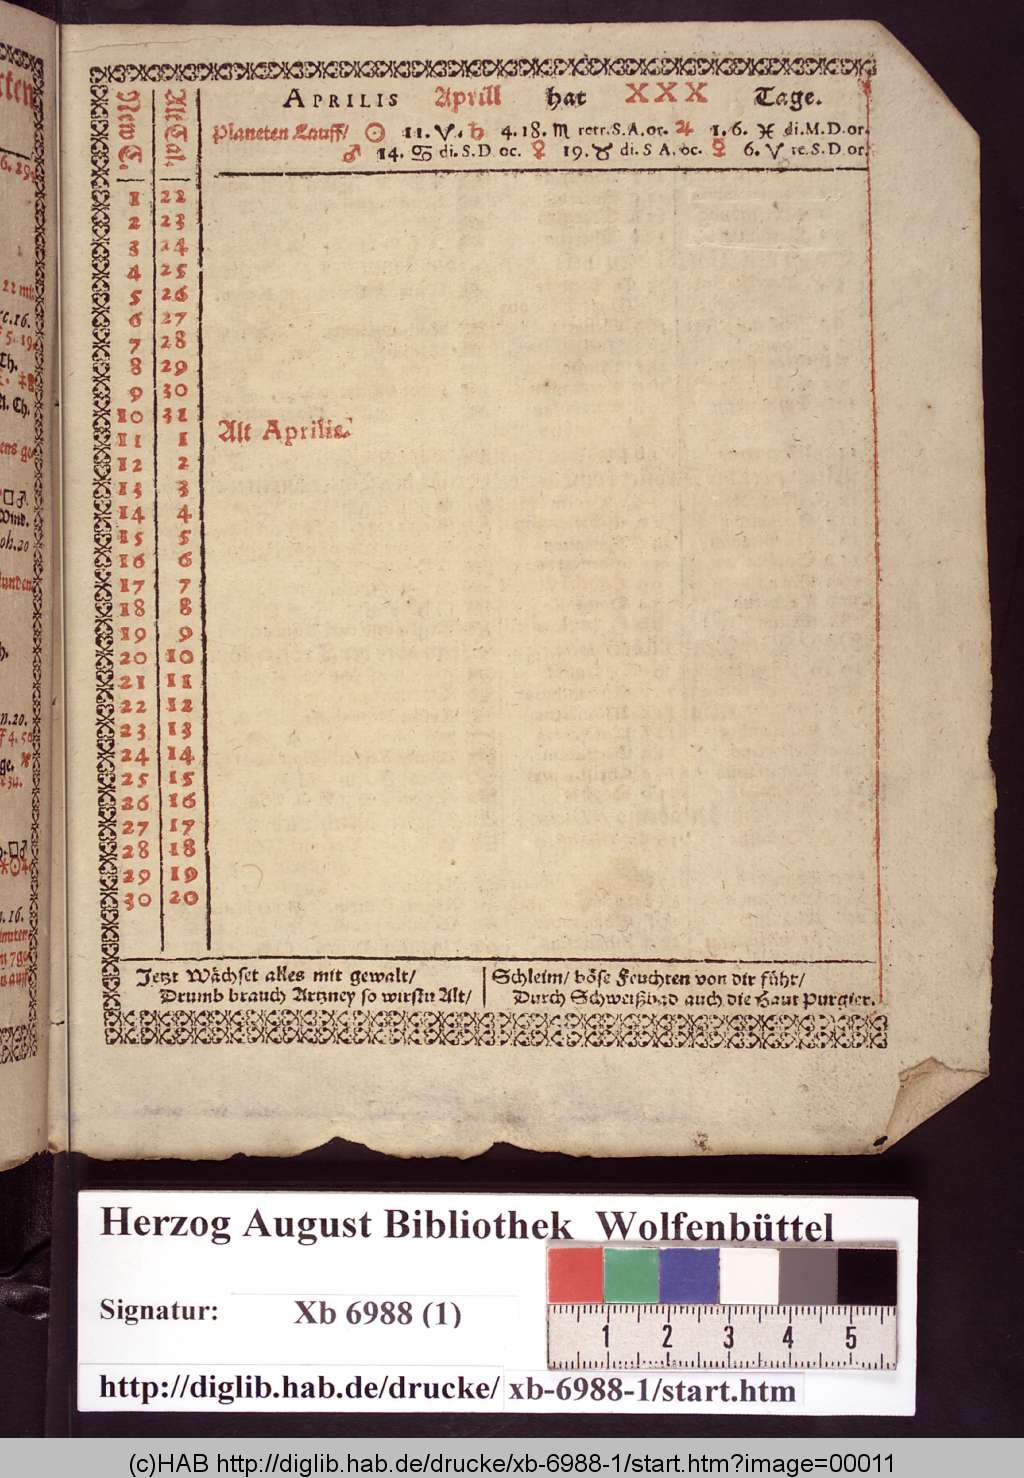 APRILIS Aprill hat XXX Tage.
New C. Alt Cal.
Planeten Lauff/ ☉ 11. ♈. ♄ 4. 18. ♏ retr. S. A. or. ♃ 1. 6. ♓ di. M. D. or.
♂ 14. ♋ di. S. D oc. ♀ 19. ♉ di. S A. oc. ☿ 6. ♈ re. S. D or.
1 22
2 23
3 24
4 25
5 26
6 27
7 28
8 29
9 30
10 31
11 1 Alt Aprilis.
12 2
13 3
14 4
15 5
16 6
17 7
18 8
19 9
20 10
21 11
22 12
23 13
24 14
25 15
26 16
27 17
28 18
29 19
30 20
Jetzt Wächset alles mit gewalt/
Drumb brauch Artzney so wirstu Alt/
Schleim/ böse Feuchten von dir führ/
Durch Schweißbad auch die Haut Purgier.
Herzog August Bibliothek Wolfenbüttel
Signatur: Xb 6988 (1)
1 2 3 4 5
http://diglib.hab.de/drucke/ xb-6988-1/start.htm
(c)HAB http://diglib.hab.de/drucke/xb-6988-1/start.htm?image=00011